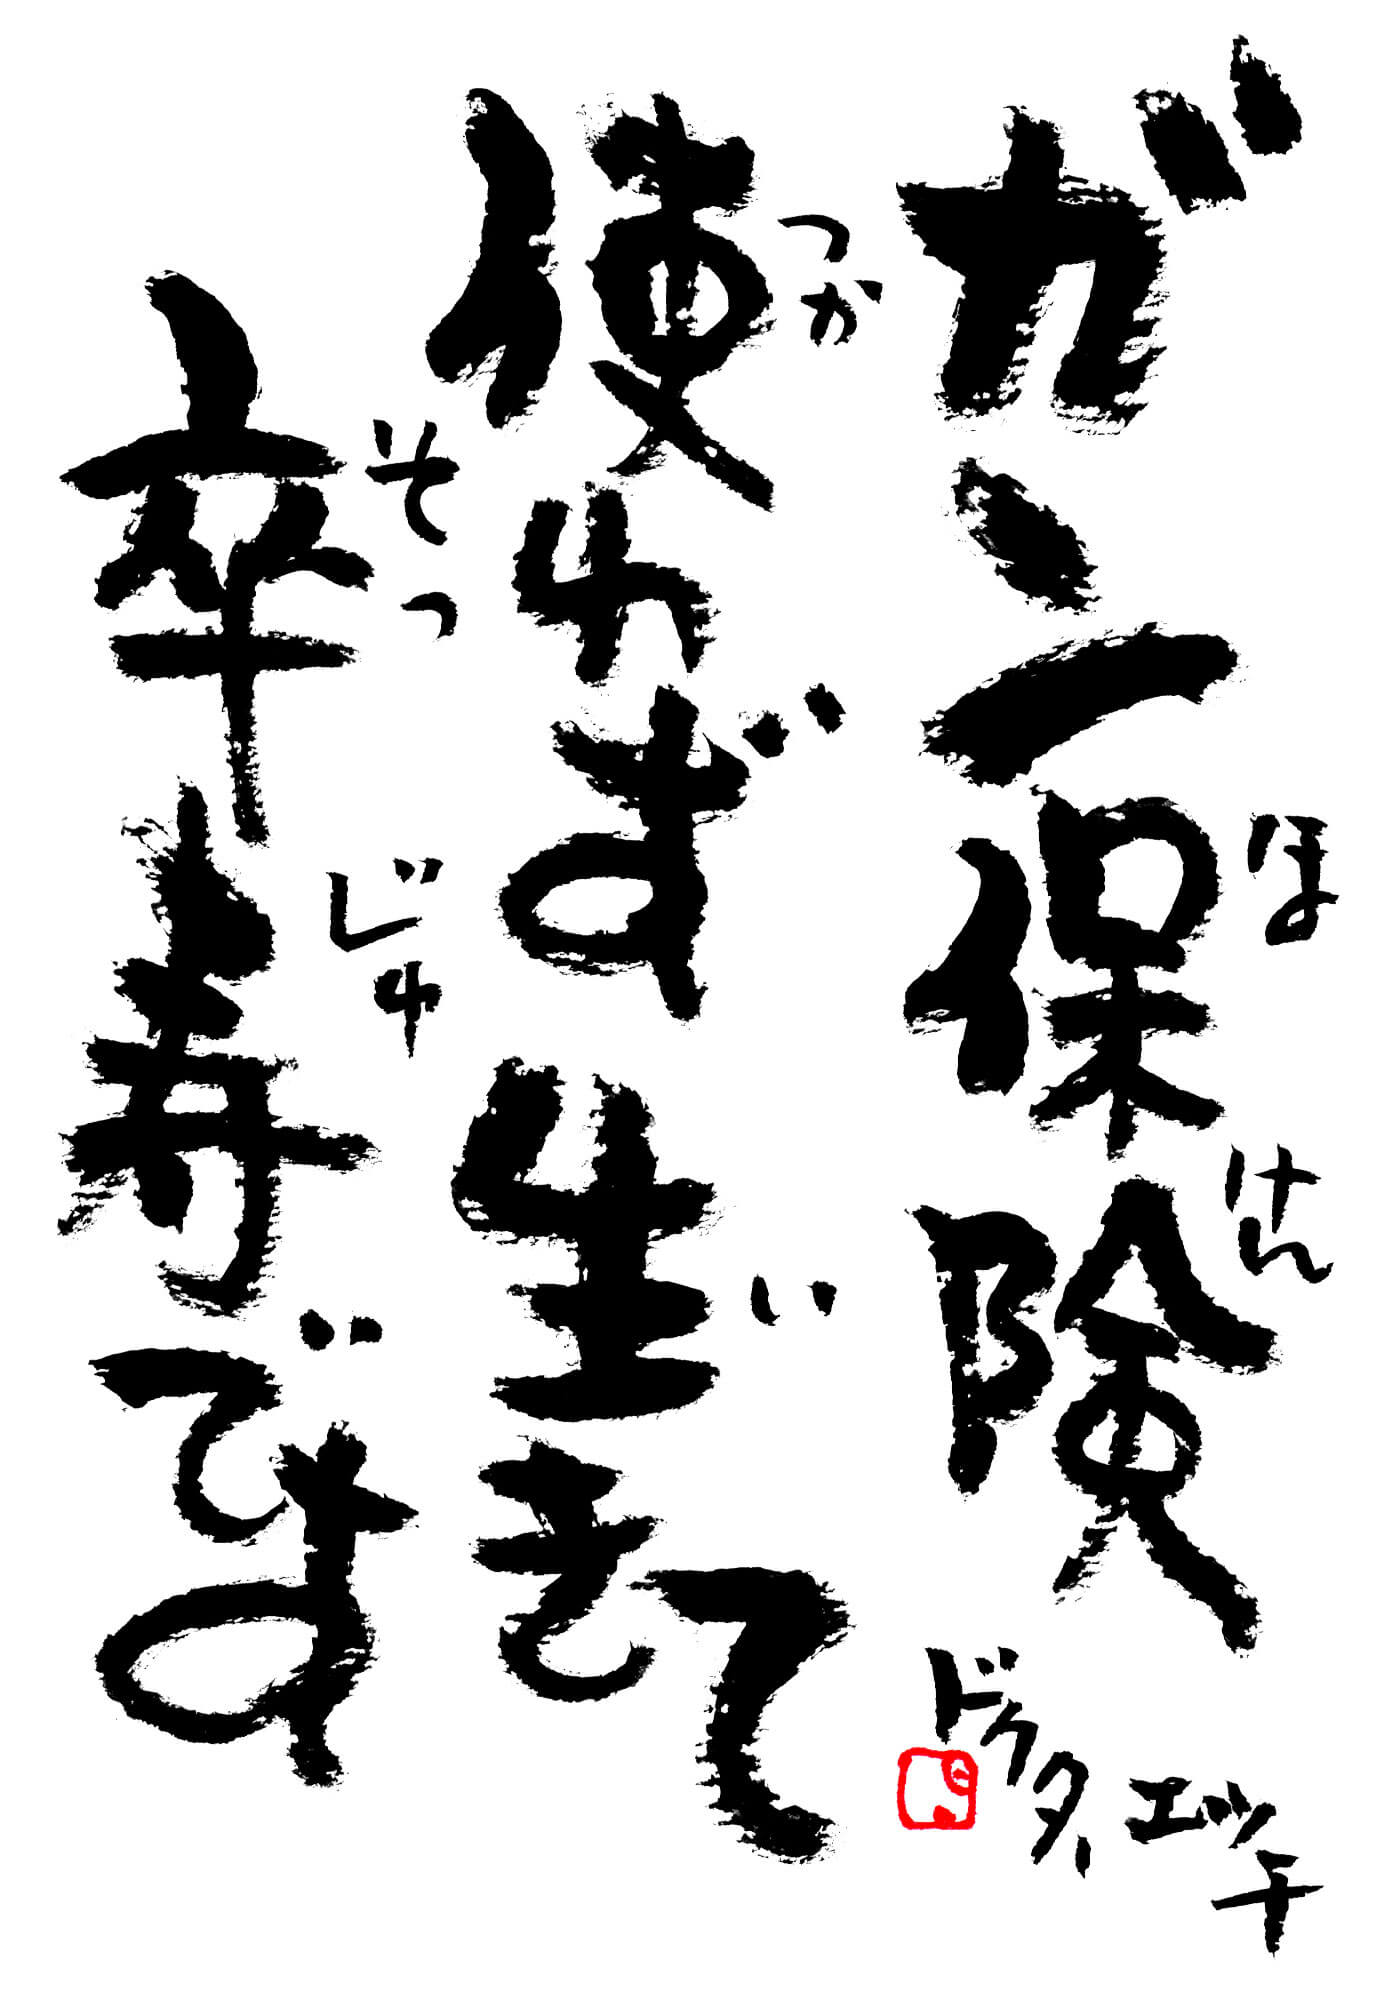 ガン保険
ほけん
使わず生きて
つか
い
卒寿です
そつ
じゅ
ドクターエッチ